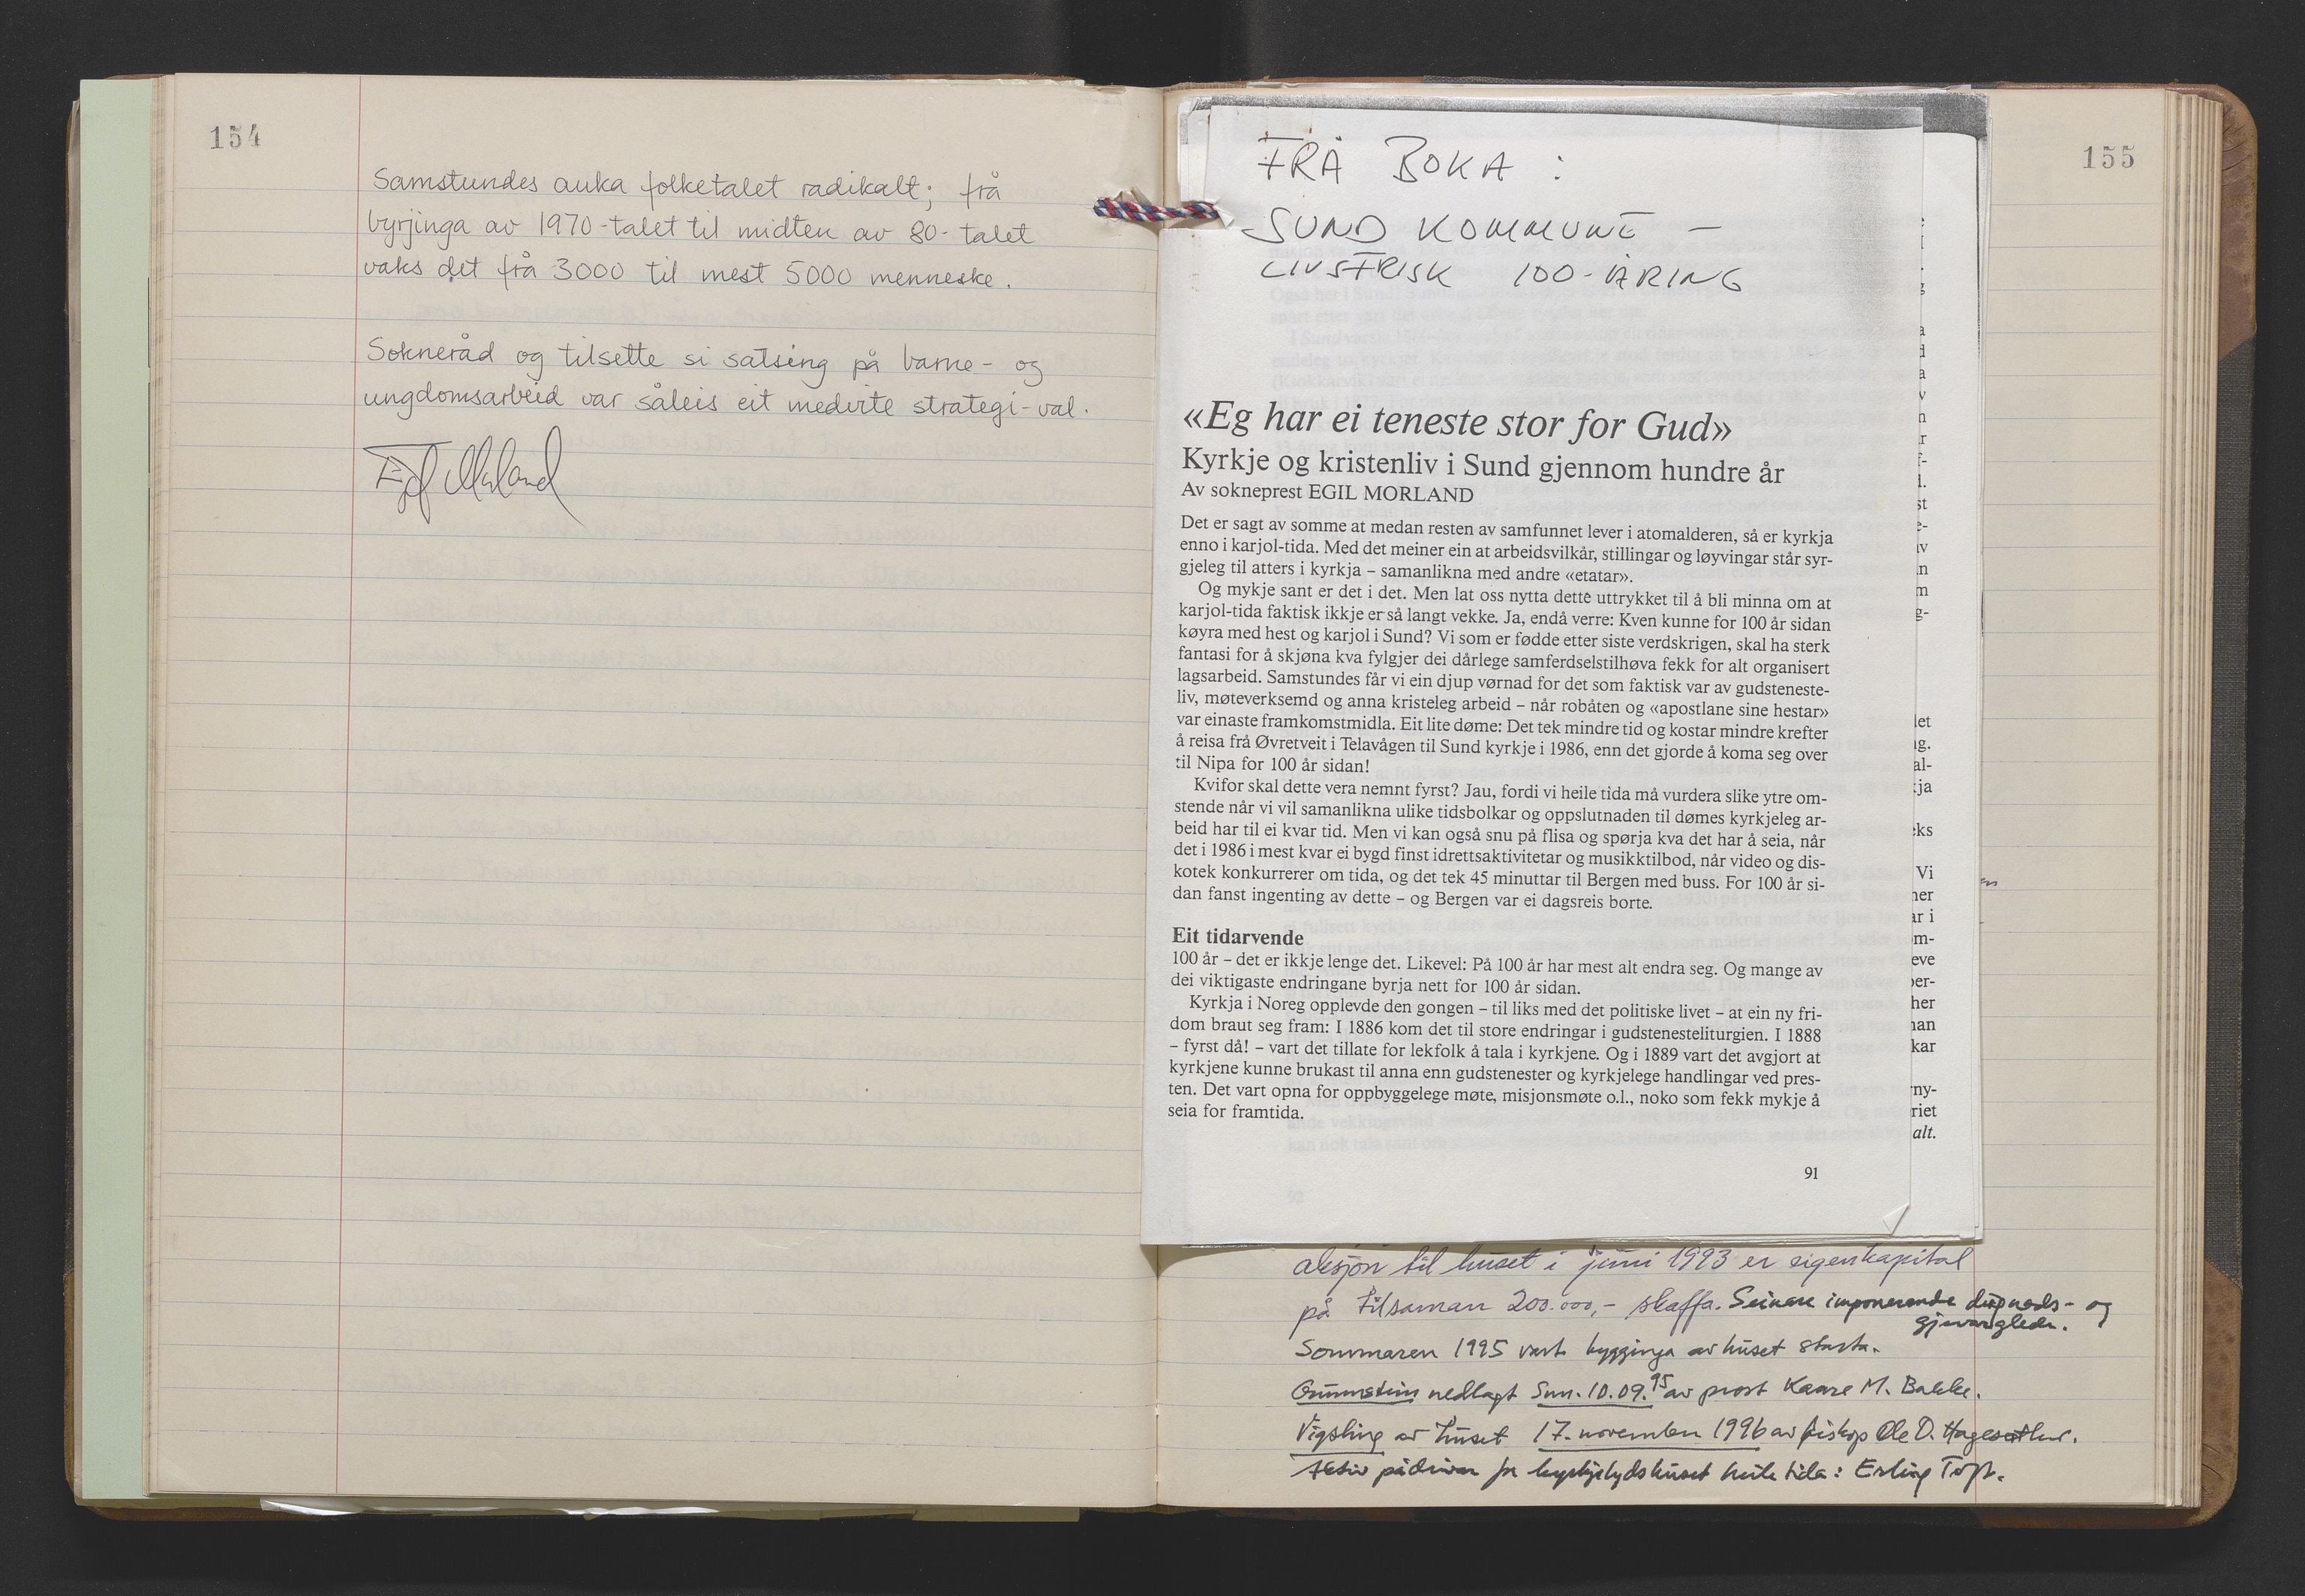 154
Samstundes auka folketalet radikalt; frå
byrjinga av 1970-talet til midten av 80-talet
vaks det frå 3000 til mest 5000 menneske.
Sokneråd og tilsette si satsing på barne- og
ungdomsarbeid var såleis eit medvite strategi-val.
Egil Morland
155
FRÅ BOKA :
SUND KOMMUNE –
LIVSFRISK 100-ÅRING
«Eg har ei teneste stor for Gud»
Kyrkje og kristenliv i Sund gjennom hundre år
Av sokneprest EGIL MORLAND
Det er sagt av somme at medan resten av samfunnet lever i atomalderen, så er kyrkja
enno i karjol-tida. Med det meiner ein at arbeidsvilkår, stillingar og løyvingar står syr-
gjeleg til atters i kyrkja – samanlikna med andre «etatar».
Og mykje sant er det i det. Men lat oss nytta dette uttrykket til å bli minna om at
karjol-tida faktisk ikkje er så langt vekke. Ja, endå verre: Kven kunne for 100 år sidan
køyra med hest og karjol i Sund? Vi som er fødde etter siste verdskrigen, skal ha sterk
fantasi for å skjøna kva fylgjer dei dårlege samferdselstilhøva fekk for alt organisert
lagsarbeid. Samstundes får vi ein djup vørnad for det som faktisk var av gudsteneste-
liv, møteverksemd og anna kristeleg arbeid – når robåten og «apostlane sine hestar»
var einaste framkomstmidla. Eit lite døme: Det tek mindre tid og kostar mindre krefter
å reisa frå Øvretveit i Telavågen til Sund kyrkje i 1986, enn det gjorde å koma seg over
til Nipa for 100 år sidan!
Kvifor skal dette vera nemnt fyrst? Jau, fordi vi heile tida må vurdera slike ytre om-
stende når vi vil samanlikna ulike tidsbolkar og oppslutnaden til dømes kyrkjeleg ar-
beid har til ei kvar tid. Men vi kan også snu på flisa og spørja kva det har å seia, når
det i 1986 i mest kvar ei bygd finst idrettsaktivitetar og musikktilbod, når video og dis-
kotek konkurrerer om tida, og det tek 45 minuttar til Bergen med buss. For 100 år si-
dan fanst ingenting av dette – og Bergen var ei dagsreis borte.
Eit tidarvende
100 år – det er ikkje lenge det. Likevel: På 100 år har mest alt endra seg. Og mange av
dei viktigaste endringane byrja nett for 100 år sidan.
Kyrkja i Noreg opplevde den gongen – til liks med det politiske livet – at ein ny fri-
dom braut seg fram: I 1886 kom det til store endringar i gudstenesteliturgien. I 1888
– fyrst då! – vart det tillate for lekfolk å tala i kyrkjene. Og i 1889 vart det avgjort at
kyrkjene kunne brukast til anna enn gudstenester og kyrkjelege handlingar ved pres-
ten. Det vart opna for oppbyggelege møte, misjonsmøte o.l., noko som fekk mykje å
seia for framtida.
91
aksjon til huset i juni 1993 er eigenkapital
på tilsaman 200.000,- skaffa. Seinare imponerande dugnads- og
gjevarglede.
Sommaren 1995 vart bygginga av huset starta.
Grunnstein nedlagt Sun. 10.09.95 av prost Kaare M. Bakke.
Vigsling av huset 17. november 1996 av biskop Ole D. Hagesæther.
Aktiv pådrivar for kyrkjelydshuset heile tida: Erling Toft.